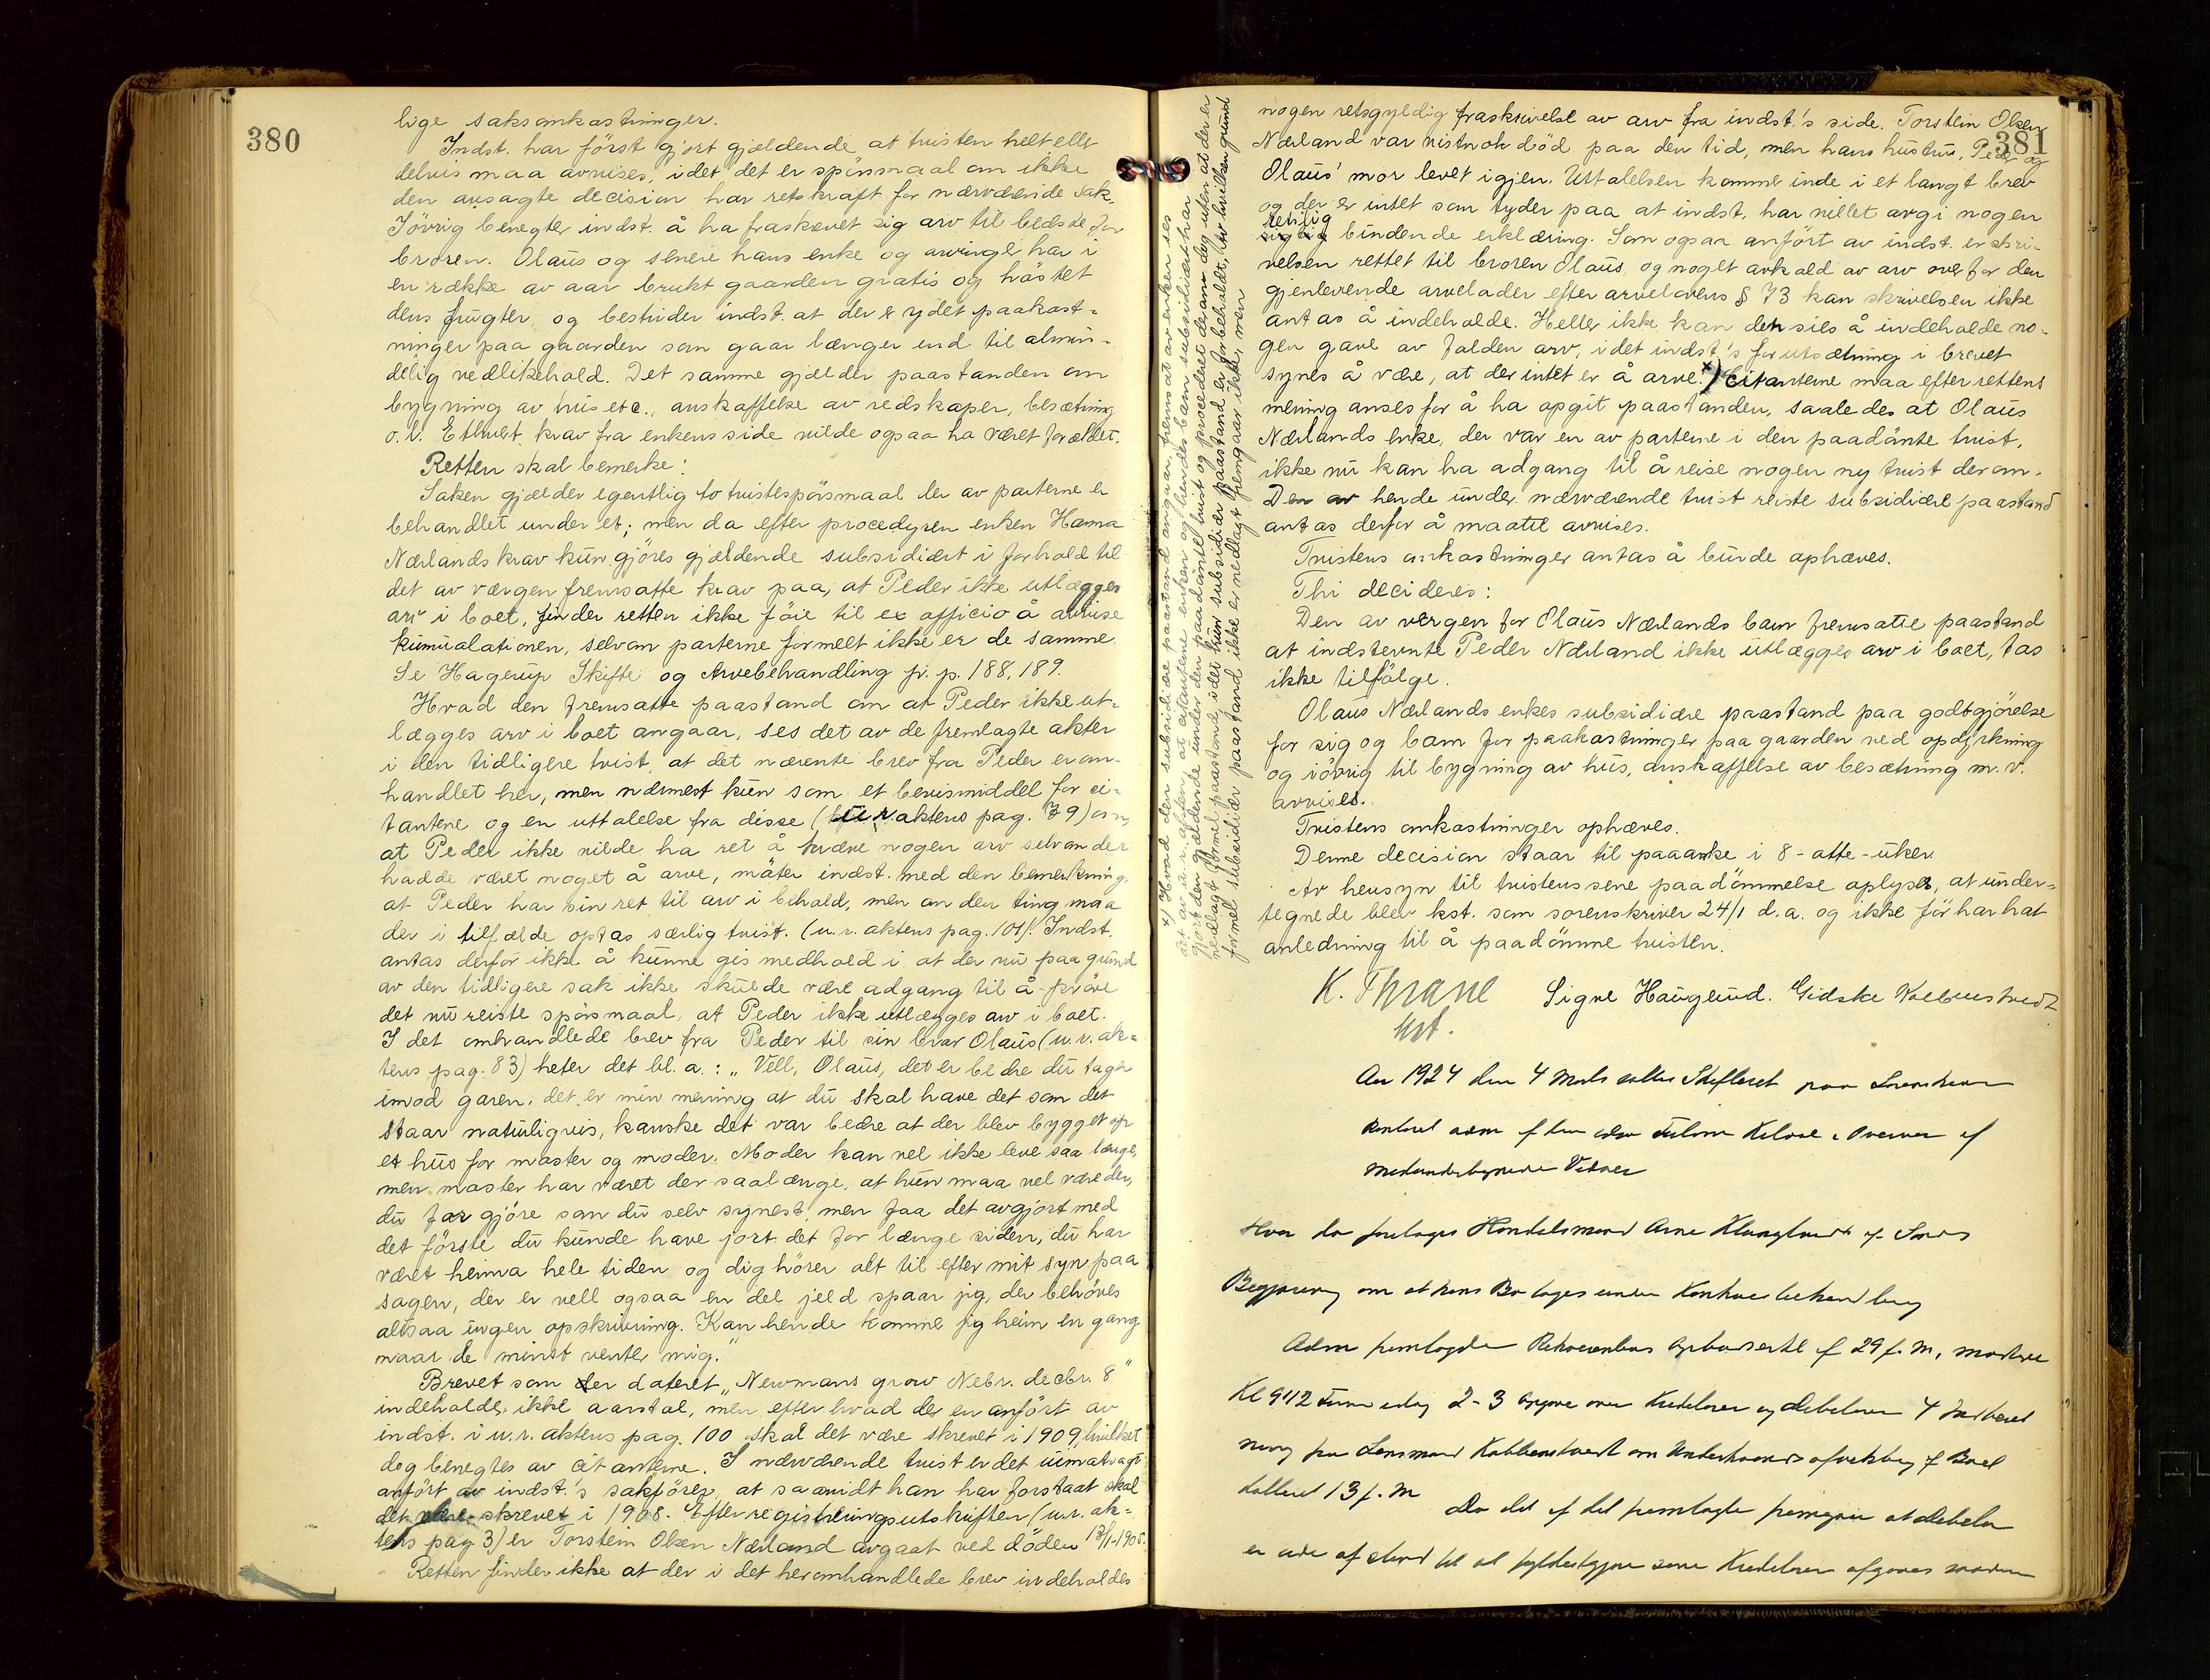 380
lige saksomkastninger.
Indst. har först gjort gjældende at tvisten helt eller
delvis maa avvises, idet det er spörsmaal om ikke
den avsagte decision har retskraft for nærværende sak.
Iövrig benegter indst. å ha fraskrevet sig arv til bedste for
broren. Olaus og senere hans enke og arvinger har i
en række av aar brukt gaarden gratis og höstet
dens frugter, og bestrider indst. at der er ydet paakost-
ninger paa gaarden som gaar længer end til almin-
delig vedlikehold. Det samme gjælder paastanden om
bygning av hus etc., anskaffelse av redskaper, besætning
o. l. Ethvert krav fra enkens side vilde ogsaa ha været forældet.
Retten skal bemerke:
Saken gjælder egentlig to tvistespörsmaal der av parterne er
behandlet under et; men da efter procedyren enken Hanna
Nærlands krav kun gjöres gjældende subsidiært i forhold til
det avværgen fremsatte krav paa, at Peder ikke utlægges
arv i boet, finder retten ikke föie til ex officio å avvise
kumulationen, selvom parterne formelt ikke er de samme.
Se Hagerup Skifte og Arvebehandling p. 188, 189.
Hvad den fremsatte paastand om at Peder ikke ut-
lægges arv i boet angaar, ses det av de fremlagte akter
i den tidligere tvist, at det nævnte brev fra Peder er om-
handlet her, men nærmest kun som et bevismiddel for ci-
tantene og en uttalelse fra disse (u.r. aktens pag. 79) om,
at Peder ikke vilde ha ret å kræve nogen arv selvom der
hadde været noget å arve, möter indst. med den bemerkning,
at Peder har sin ret til arv i behold, men om den ting maa
der i tilfælde optas særlig tvist. (u.r. aktens pag. 101). Indst.
antas derfor ikke å kunne gis medhold i at der nu paa grund
av den tidligere sak ikke skulde være adgang til å pröve
det nu reiste spörsmaal, at Peder ikke utlægges arv i boet.
I det omhandlede brev fra Peder til sin bror Olaus (u.r. ak-
tens pag. 83) heter det bl. a.: „Vell, Olaus, det er bedre du tager
imod garen, det er min mening at du skal have det som det
staar naturligvis, kanske det var bedre at der blev bygget op
et hus for moster og moder. Moder kan vel ikke leve saa længe,
men moster har været der saa længe, at hun maa vel være der,
du far gjöre som du selv synest, men faa det avgjort med
det förste du kunde have jort det for længe siden, du har
været heima hele tiden og dig hörer alt til efter mit syn paa
sagen, der er vell ogsaa en del jeld spaar jig, der behöves
altsaa ingen opskrivning. Kan hende kommer jig heim en gang
naar de minst venter mig."
Brevet som er dateret „Newmans grow Nebr. decbr. 8"
indeholder ikke aarstal, men efter hvad der er anfört av
indst. i u.r. aktens pag. 100 skal det være skrevet i 1909, hvilket
dog benegtes av citanterne. I nærværende tvist er det uimotsagt
anfört av indst.'s sakförer, at saavidt han har forstaat skal
det være skrevet i 1908. Efter registreringsutskriften (u.r. ak-
tens pag. 3) er Torstein Olsen Nærland avgaat ved döden 13/1-1905.
Retten finder ikke at der i det heromhandlede brev indeholdes
381
nogen retsgyldig fraskrivelse av arv fra indst.'s side. Torstein Olsen
Nærland var vistnok död paa den tid, men hans hustru, Peder og
Olaus' mor levet igjen. Uttalelsen kommer inde i et langt brev
og der er intet som tyder paa at indst. har villet avgi nogen
retslig bindende erklæring. Som ogsaa anfört av indst. er skri-
velsen rettet til broren Olaus, og noget avkald av arv overfor den
gjenlevende arvelader efter arvelovens § 73 kan skrivelsen ikke
antas å indeholde. Heller ikke kan den sies å indeholde no-
gen gave av falden arv, idet indst.'s forutsætning i brevet
synes å være, at der intet er å arve. x) Citanterne maa efter rettens
mening anses for å ha opgit paastanden, saaledes at Olaus
Nærlands enke, der var en av parterne i den paadömte tvist,
ikke nu kan ha adgang til å reise nogen ny tvist derom.
Den av hende under nærværende tvist reiste subsidiære paastand
antas derfor å maatte avvises.
Tvistens omkostninger antas å burde ophæves.
Thi decideres:
Den av vergen for Olaus Nærlands barn fremsatte paastand
at indstevnte Peder Nærland ikke utlægges arv i boet, tas
ikke tilfölge.
Olaus Nærlands enkes subsidiære paastand paa godtgjörelse
for sig og barn for paakostninger paa gaarden ved opdyrkning
og iövrig til bygning av hus, anskaffelse av besætning m. v.
avvises.
Tvistens omkostninger ophæves.
Denne decision staar til paaanke i 8-otte-uker.
Av hensyn til tvistens sene paadömmelse oplyses, at under-
tegnede blev kst. som sorenskriver 24/1 d.a. og ikke för har hat
anledning til å paadömme tvisten.
K. Thrane Signe Hauglund. Gidske Kolbenstvedt
kst.
x) Hvad den subsidiære paastand angaar, fremsat av enken ses
det av u.r. akten, at citanterne enken og hendes barn subsidiært har
gjort den gjældende under den paadömte tvist og procederet derom dog uten at der er
nedlagt formel paastand, idet kun subsidiær paastand er forbeholdt, av hvilken grund
formel subsidiær paastand ikke er nedlagt fremgaar ikke, men
Aar 1924 den 4 Marts holdtes Skifteret paa Sorenskriver
kontoret adm af
Hvor da foretoges Handelsmand Arne af
Begjæring om at hans Bo tages under Konkursbehandling
Adm fremlagde af 29 f. M,
Kl 9 1/2 2-3 Opgave over Kreditorer og Debitorer 4
fra Lensmand Kolbenstvedt om af Boet
dateret 13 f. M Da det af det fremlagte fremgaar at Debitor
er ude af stand til at fyldestgjøre sine Kreditorer